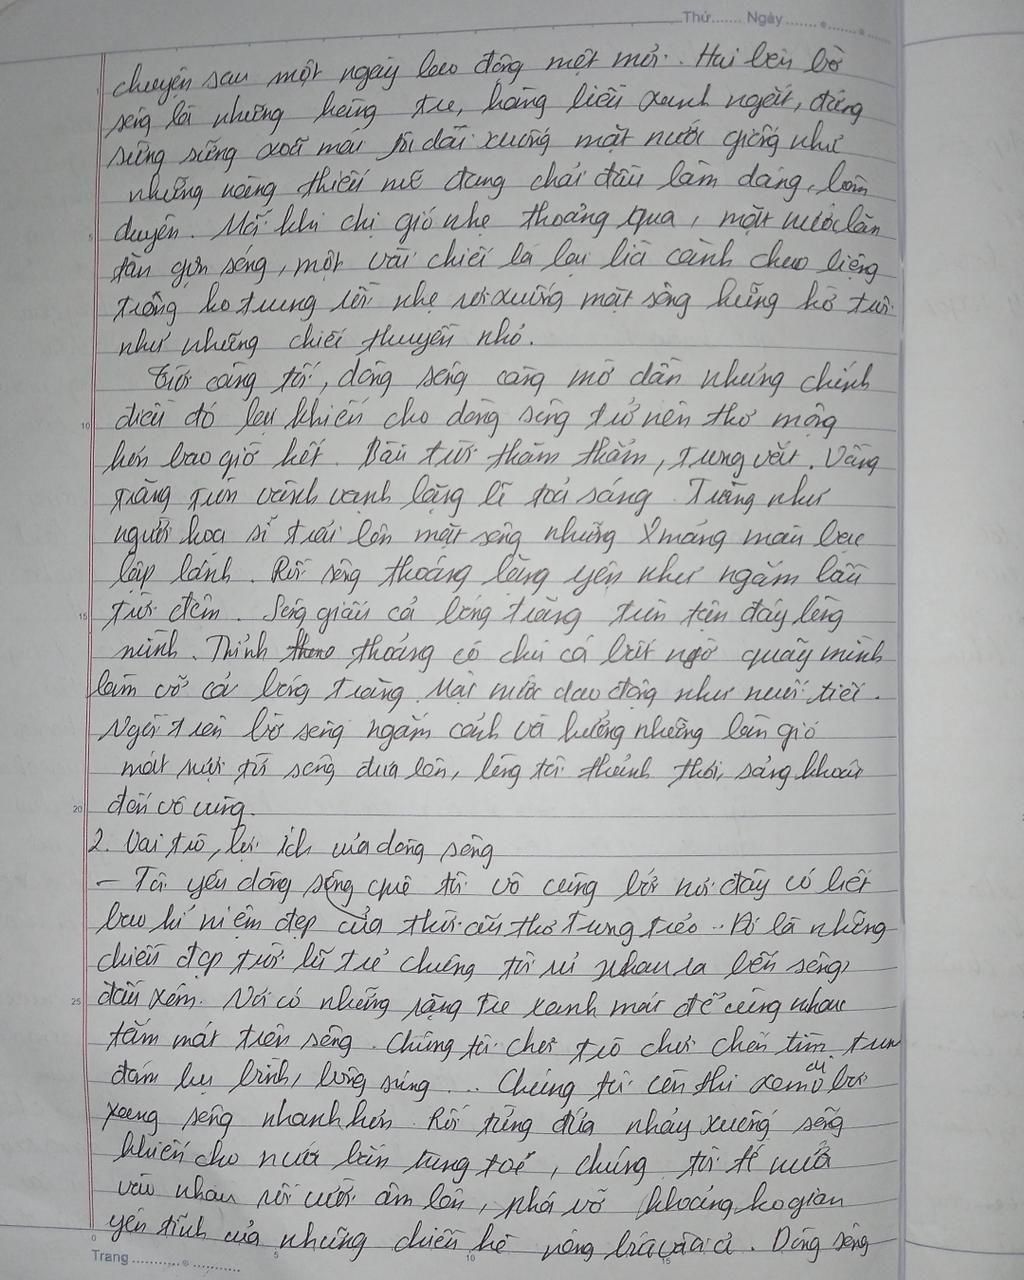 Thứ....... Ngày.......
chuyện sau một ngày lao động mệt mỏi. Hai bên bờ
sông là những hàng tre, hàng liễu xanh ngắt, đứng
sừng sững xoã mái tóc dài xuống mặt nước giống như
những nàng thiếu nữ đang chải đầu làm dáng, làm
duyên. Mỗi khi chị gió nhẹ thoảng qua, mặt nước lăn
tăn gợn sóng, một vài chiếc lá lại lìa cành chao liệng
trong ko trung rồi nhẹ rơi xuống mặt sông hững hờ trôi
như những chiếc thuyền nhỏ.
Trời càng tối, dòng sông càng mờ dần nhưng chính
điều đó lại khiến cho dòng sông trở nên thơ mộng
hơn bao giờ hết. Bầu trời thăm thẳm, trong vắt. Vầng
trăng tròn vành vạnh lặng lẽ toả sáng. Trăng như
người hoạ sĩ trải lên mặt sông những mảng màu bạc
lấp lánh. Rồi sông thoáng lặng yên như ngắm bầu
trời đêm. Sông giấu cả bóng trăng trên tận đáy lòng
mình. Thỉnh thoảng có chú cá bất ngờ quẫy mình
làm vỡ cả bóng trăng. Mặt nước dao động như nuối tiếc.
Ngồi trên bờ sông ngắm cảnh và hưởng những làn gió
mát rượi từ sông đưa lên, lòng tôi thảnh thơi, sảng khoái
đến vô cùng.
2. Vai trò, lợi ích của dòng sông
- Tôi yêu dòng sông quê tôi vô cùng bởi nơi đây có biết
bao kỉ niệm đẹp của thời ấu thơ trong trẻo.. Đó là những
chiều đẹp trời lũ trẻ chúng tôi rủ nhau ra bến sông
đầu xóm. Nơi có những rặng tre xanh mát để cùng nhau
tắm mát trên sông. Chúng tôi chơi trò chơi chốn tìm, trận
đám lục bình, bông súng... Chúng tôi còn thi xem ai bơi
xang sông nhanh hơn. Rồi từng đứa nhảy xuống sông
khiến cho nước bắn tung toé, chúng tôi té nước
vào nhau rồi cười ầm lên, phá vỡ khoảng ko gian
yên tĩnh của những chiều hè nóng bức oi ả. Dòng sông
Trang.......